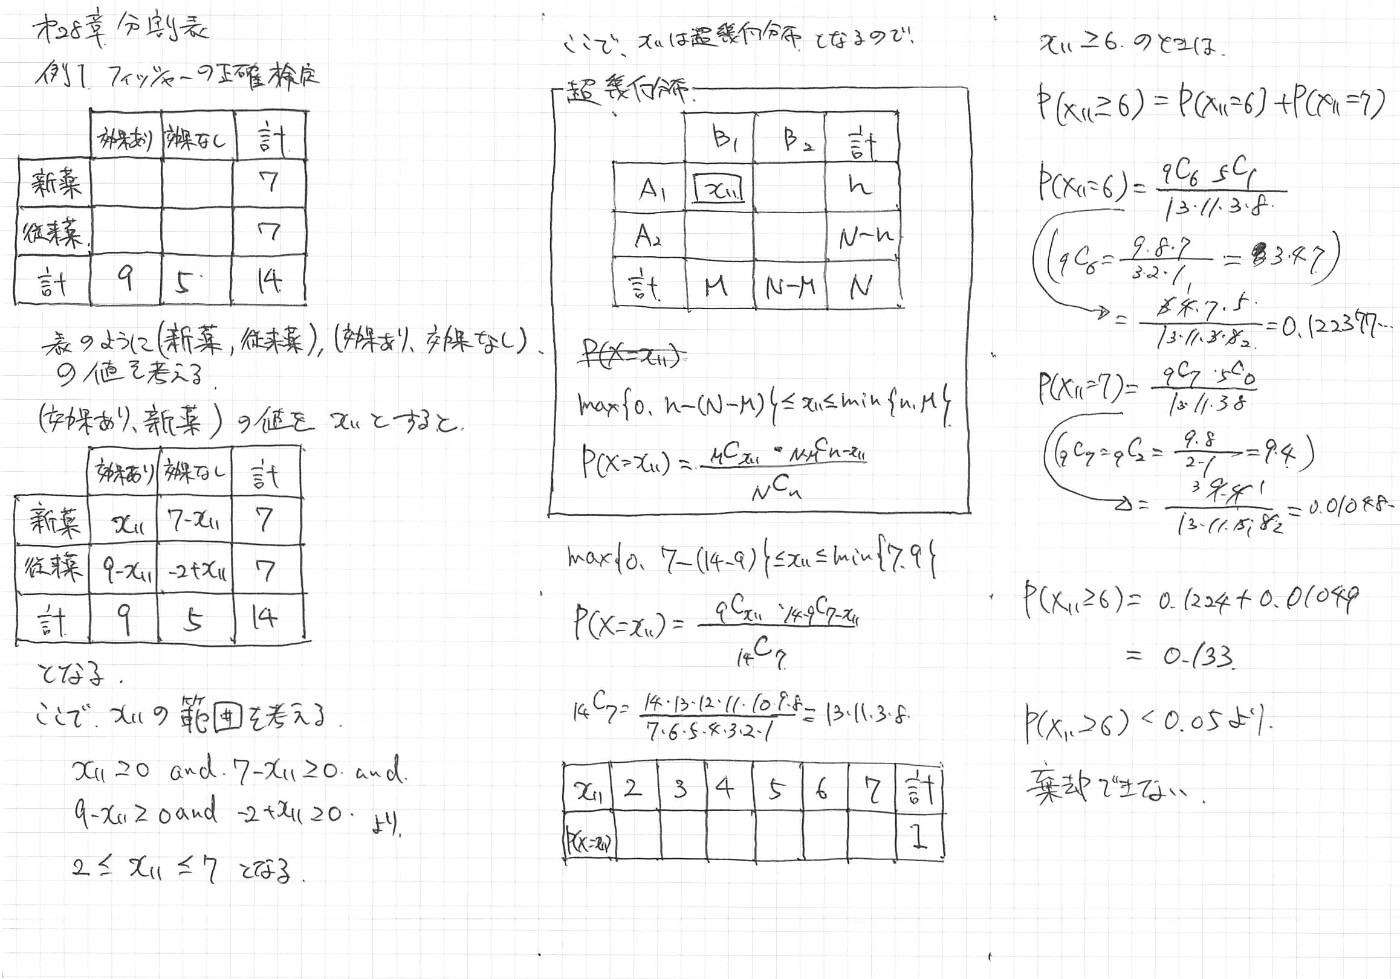 第28章 分割表
例1 フィッシャーの正確検定
効果あり 効果なし 計
新薬 7
従来薬 7
計 9 5 14
表のように(新薬, 従来薬), (効果あり、効果なし)
の値を考える.
(効果あり、新薬)の値を x₁₁ とすると.
効果あり 効果なし 計
新薬 x₁₁ 7-x₁₁ 7
従来薬 9-x₁₁ -2+x₁₁ 7
計 9 5 14
となる.
ここで. x₁₁の範囲を考える.
x₁₁≥0 and. 7-x₁₁≥0. and.
9-x₁₁≥0 and -2+x₁₁≥0. より.
2≤x₁₁≤7 となる.
ここで、x₁₁は超幾何分布となるので.
超幾何分布.
B₁ B₂ 計
A₁ x₁₁ n
A₂ N-n
計 M N-M N
P(X=x₁₁)
max{0. n-(N-M)}≤x₁₁≤min{n.M}
P(X=x₁₁) = MCx₁₁・N-MCn-x₁₁ / NCn
max{0. 7-(14-9)}≤x₁₁≤min{7.9}
P(X=x₁₁) = 9Cx₁₁・14-9C7-x₁₁ / 14C7
14C7 = 14・13・12・11・10・9・8 / 7・6・5・4・3・2・1 = 13・11・3・8.
x₁₁ 2 3 4 5 6 7 計
P(X=x₁₁) 1
x₁₁≥6. のときは.
P(x₁₁≥6) = P(x₁₁=6)+P(x₁₁=7)
P(x₁₁=6) = 9C6 5C1 / 13・11・3・8
(9C6 = 9・8・7 / 3・2・1 = 3・4・7)
= 3・4・7・5 / 13・11・3・8₂ = 0.122377...
P(x₁₁=7) = 9C7・5C0 / 13・11・3・8
(9C7 = 9C2 = 9・8 / 2・1 = 9.4)
= 9・4 / 13・11・3・8₂ = 0.01048-
P(x₁₁≥6) = 0.1224+0.01049
= 0.133.
P(x₁₁≥6) < 0.05より.
棄却できない.